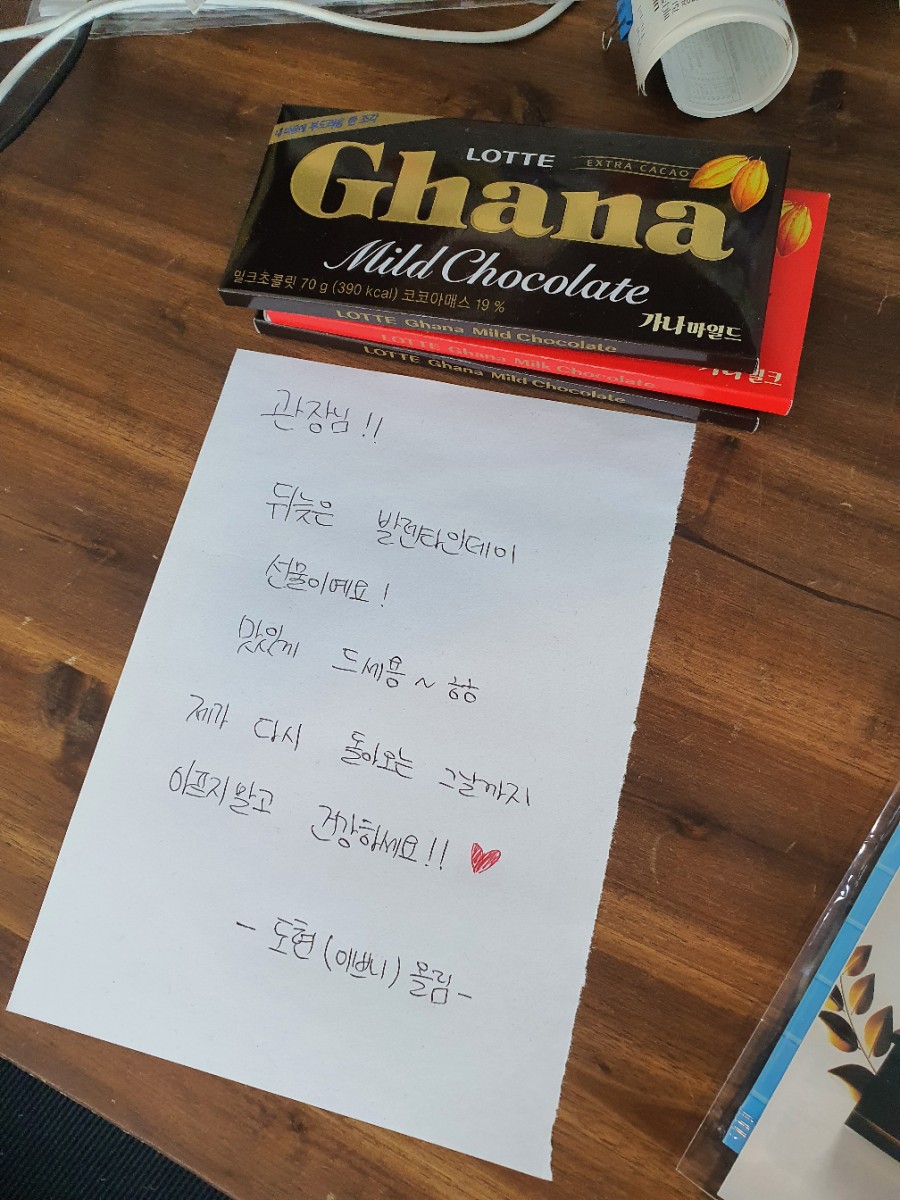 내 마음에 부드러운 한 조각
LOTTE
EXTRA CACAO
Ghana
Mild Chocolate
밀크초콜릿 70 g (390 kcal) 코코아매스 19 %
가나마일드
LOTTE Ghana Mild Chocolate
LOTTE Ghana Milk Chocolate
가나밀크
LOTTE Ghana Mild Chocolate
관장님!!
뒤늦은 발렌타인데이
선물이예요!
맛있께 드세용~ ㅎㅎ
제가 다시 돌아오는 그날까지
아프지말고 건강하세요!! ♥
- 도현 (이쁘니) 올림 -